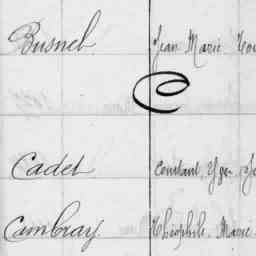 Busnel Jean Marie
C
Cadet Constant
Cambray Théophile Marie